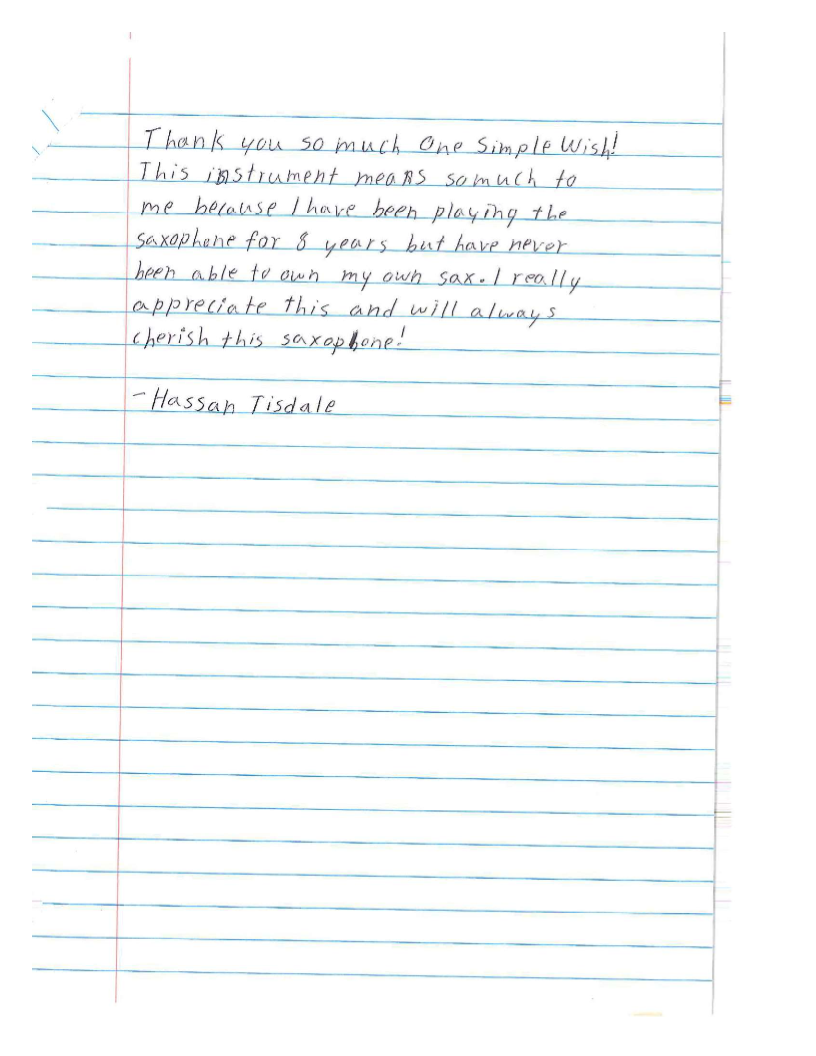 Thank you so much One Simple Wish!
This instrument means so much to
me because I have been playing the
saxophone for 8 years but have never
been able to own my own sax. I really
appreciate this and will always
cherish this saxophone!
- Hassan Tisdale